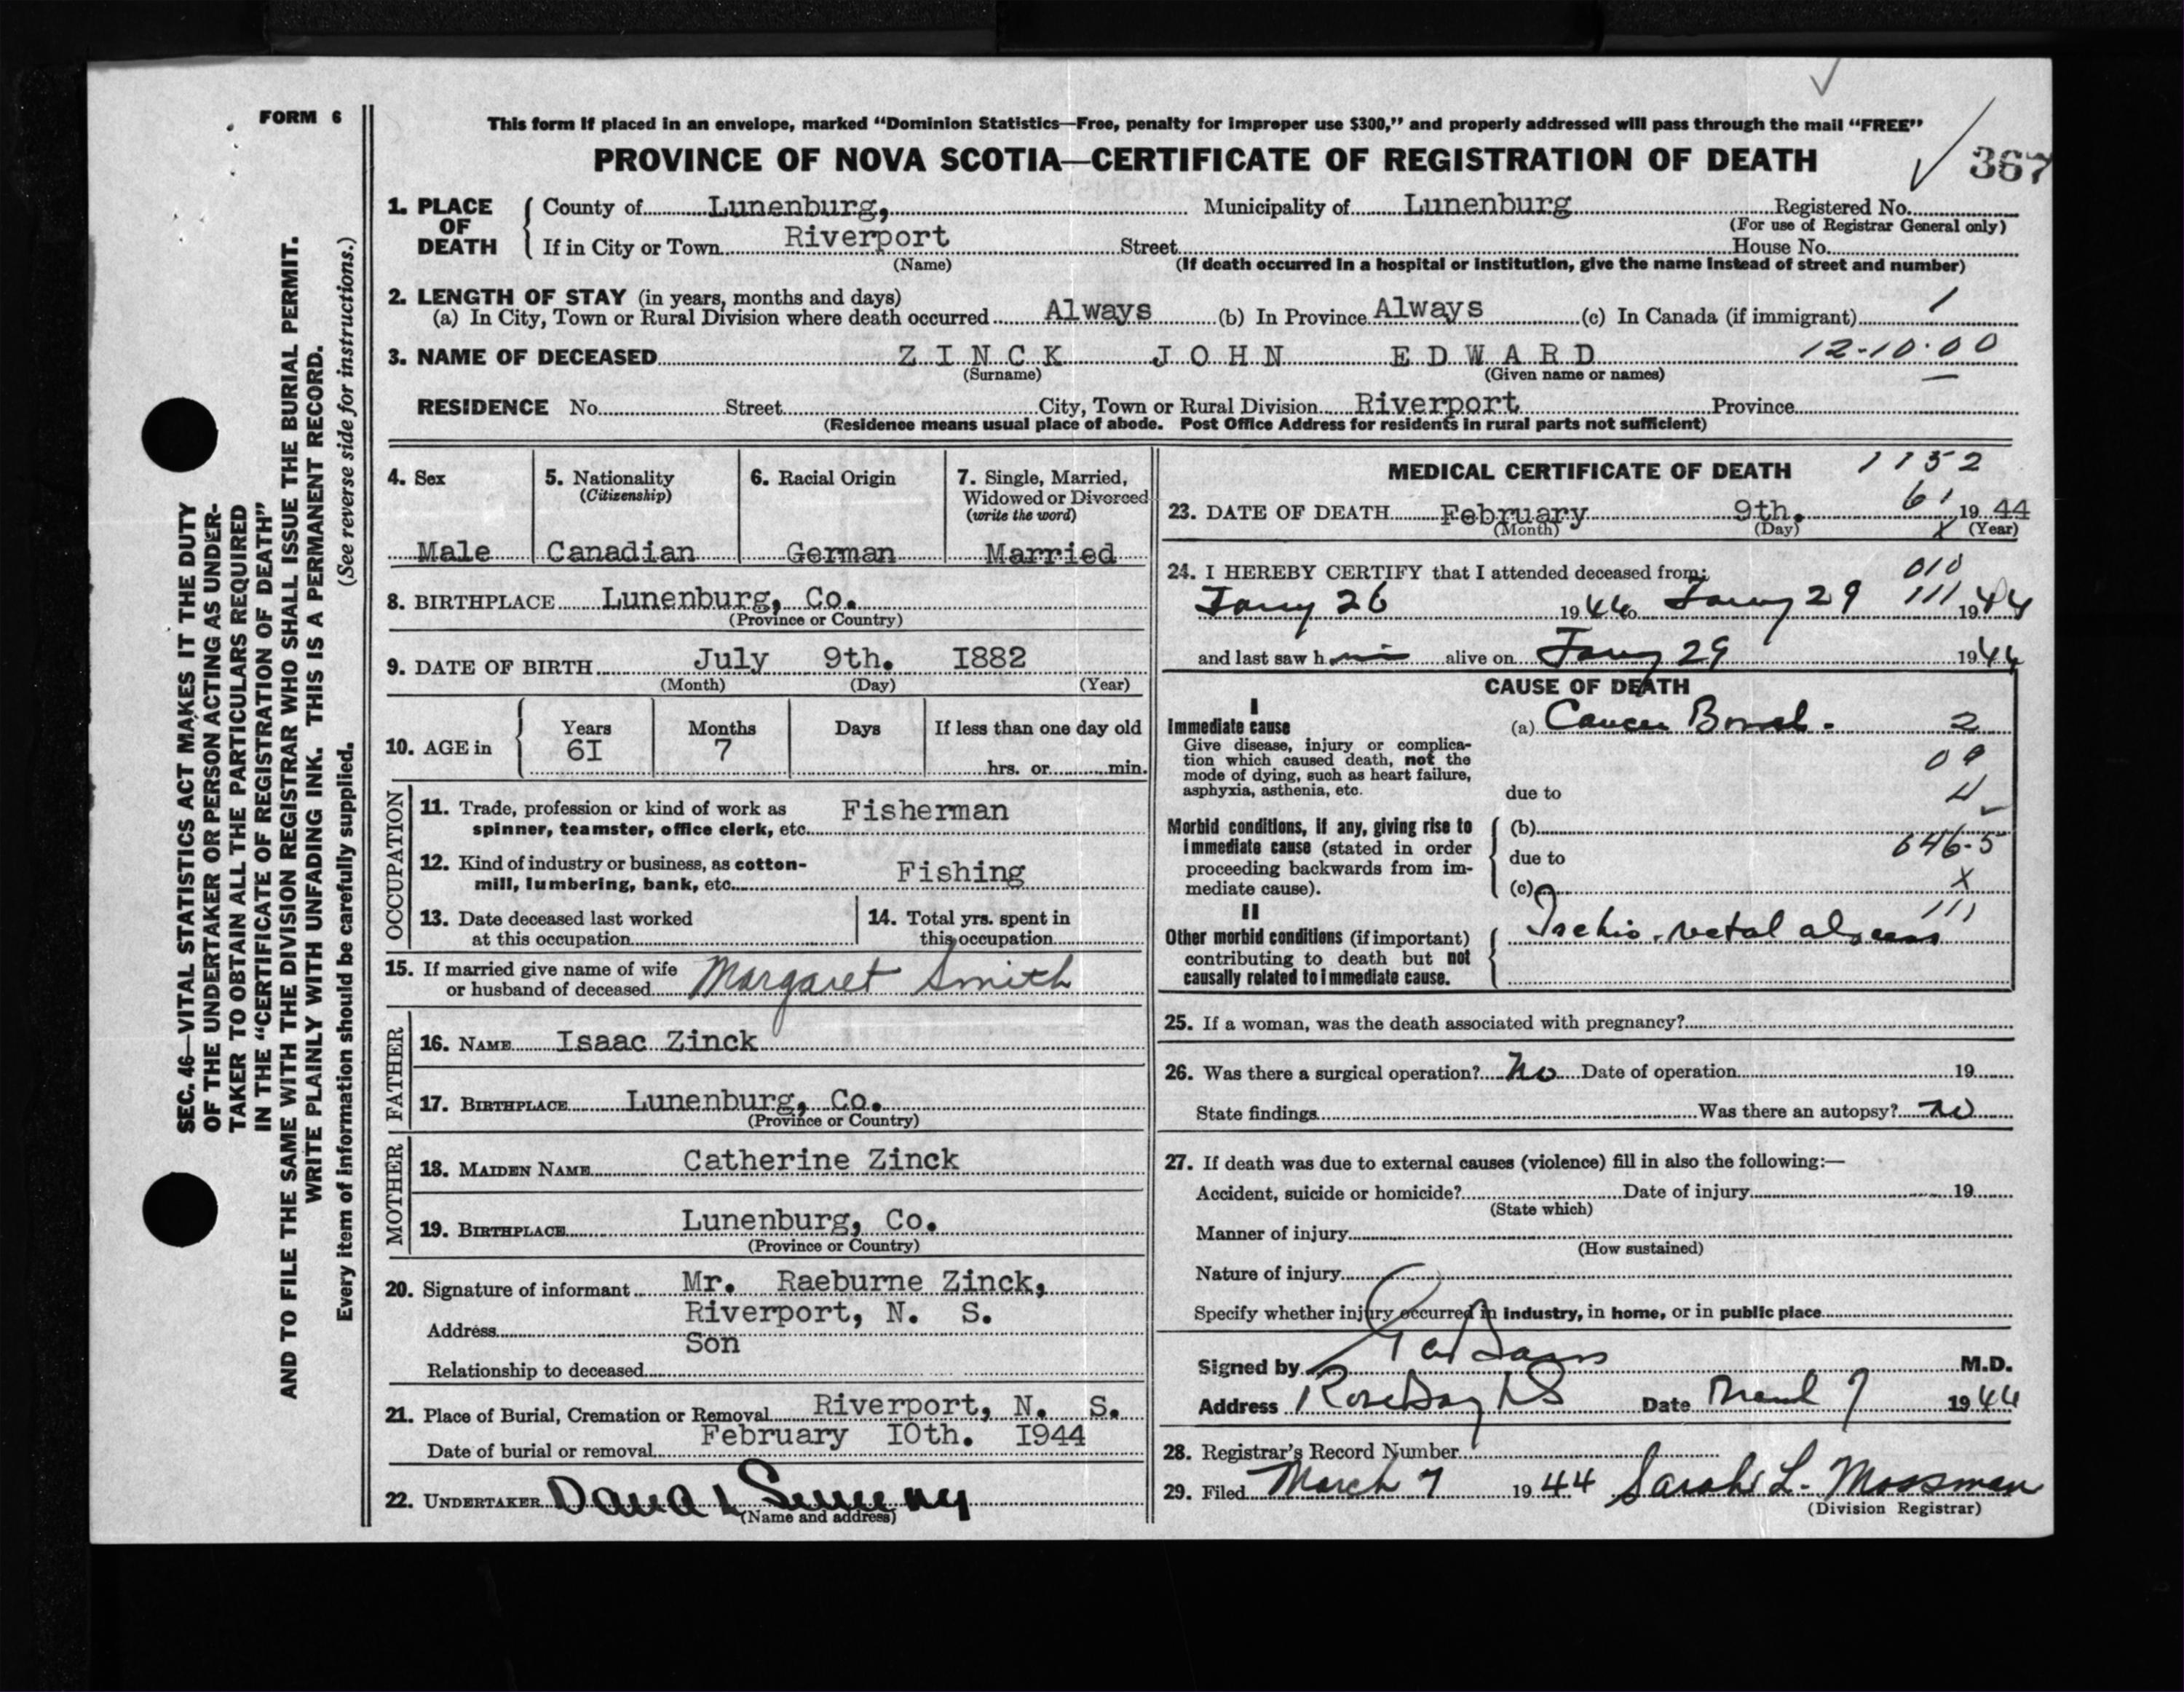 FORM 6
This form if placed in an envelope, marked "Dominion Statistics—Free, penalty for improper use $300," and properly addressed will pass through the mail "FREE"
PROVINCE OF NOVA SCOTIA—CERTIFICATE OF REGISTRATION OF DEATH
367
1. PLACE OF DEATH
County of Lunenburg, Municipality of Lunenburg Registered No.
(For use of Registrar General only)
If in City or Town Riverport Street House No.
(Name) (If death occurred in a hospital or institution, give the name instead of street and number)
2. LENGTH OF STAY (in years, months and days)
(a) In City, Town or Rural Division where death occurred Always (b) In Province Always (c) In Canada (if immigrant) 1
3. NAME OF DECEASED ZINCK JOHN EDWARD 12-10.00
(Surname) (Given name or names)
RESIDENCE No. Street City, Town or Rural Division Riverport Province
(Residence means usual place of abode. Post Office Address for residents in rural parts not sufficient)
SEC. 46—VITAL STATISTICS ACT MAKES IT THE DUTY
OF THE UNDERTAKER OR PERSON ACTING AS UNDER-
TAKER TO OBTAIN ALL THE PARTICULARS REQUIRED
IN THE "CERTIFICATE OF REGISTRATION OF DEATH"
AND TO FILE THE SAME WITH THE DIVISION REGISTRAR WHO SHALL ISSUE THE BURIAL PERMIT.
WRITE PLAINLY WITH UNFADING INK. THIS IS A PERMANENT RECORD.
Every item of information should be carefully supplied. (See reverse side for instructions.)
4. Sex
Male
5. Nationality
(Citizenship)
Canadian
6. Racial Origin
German
7. Single, Married,
Widowed or Divorced
(write the word)
Married
8. BIRTHPLACE Lunenburg, Co.
(Province or Country)
9. DATE OF BIRTH July 9th. I882
(Month) (Day) (Year)
10. AGE in
Years Months Days If less than one day old
6I 7 hrs. or min.
OCCUPATION
11. Trade, profession or kind of work as
spinner, teamster, office clerk, etc. Fisherman
12. Kind of industry or business, as cotton-
mill, lumbering, bank, etc. Fishing
13. Date deceased last worked
at this occupation
14. Total yrs. spent in
this occupation
15. If married give name of wife
or husband of deceased Margaret Smith
FATHER
16. NAME Isaac Zinck
17. BIRTHPLACE Lunenburg, Co.
(Province or Country)
MOTHER
18. MAIDEN NAME Catherine Zinck
19. BIRTHPLACE Lunenburg, Co.
(Province or Country)
20. Signature of informant Mr. Raeburne Zinck,
Address Riverport, N. S.
Relationship to deceased Son
21. Place of Burial, Cremation or Removal Riverport, N. S.
Date of burial or removal February IOth. I944
22. UNDERTAKER
(Name and address)
MEDICAL CERTIFICATE OF DEATH 1152
23. DATE OF DEATH February 9th. 61 19 44
(Month) (Day) X (Year)
24. I HEREBY CERTIFY that I attended deceased from: 010
Jany 26 19 44 to Jany 29 111 19 44
and last saw h im alive on Jany 29 19 44
CAUSE OF DEATH
I
Immediate cause (a) Cancer Bowel. 2
Give disease, injury or complica-
tion which caused death, not the
mode of dying, such as heart failure,
asphyxia, asthenia, etc.
09
due to 4
Morbid conditions, if any, giving rise to
immediate cause (stated in order
proceeding backwards from im-
mediate cause).
(b)
due to 646-5
(c) X
II 111
Other morbid conditions (if important)
contributing to death but not
causally related to immediate cause.
Ischio-rectal abscess
25. If a woman, was the death associated with pregnancy?
26. Was there a surgical operation? No Date of operation 19
State findings Was there an autopsy? no
27. If death was due to external causes (violence) fill in also the following:—
Accident, suicide or homicide? Date of injury 19
(State which)
Manner of injury
(How sustained)
Nature of injury
Specify whether injury occurred in industry, in home, or in public place
Signed by M.D.
Address Rose Bay NS Date March 7 19 44
28. Registrar's Record Number
29. Filed March 7 19 44 Sarah L. Mossman
(Division Registrar)